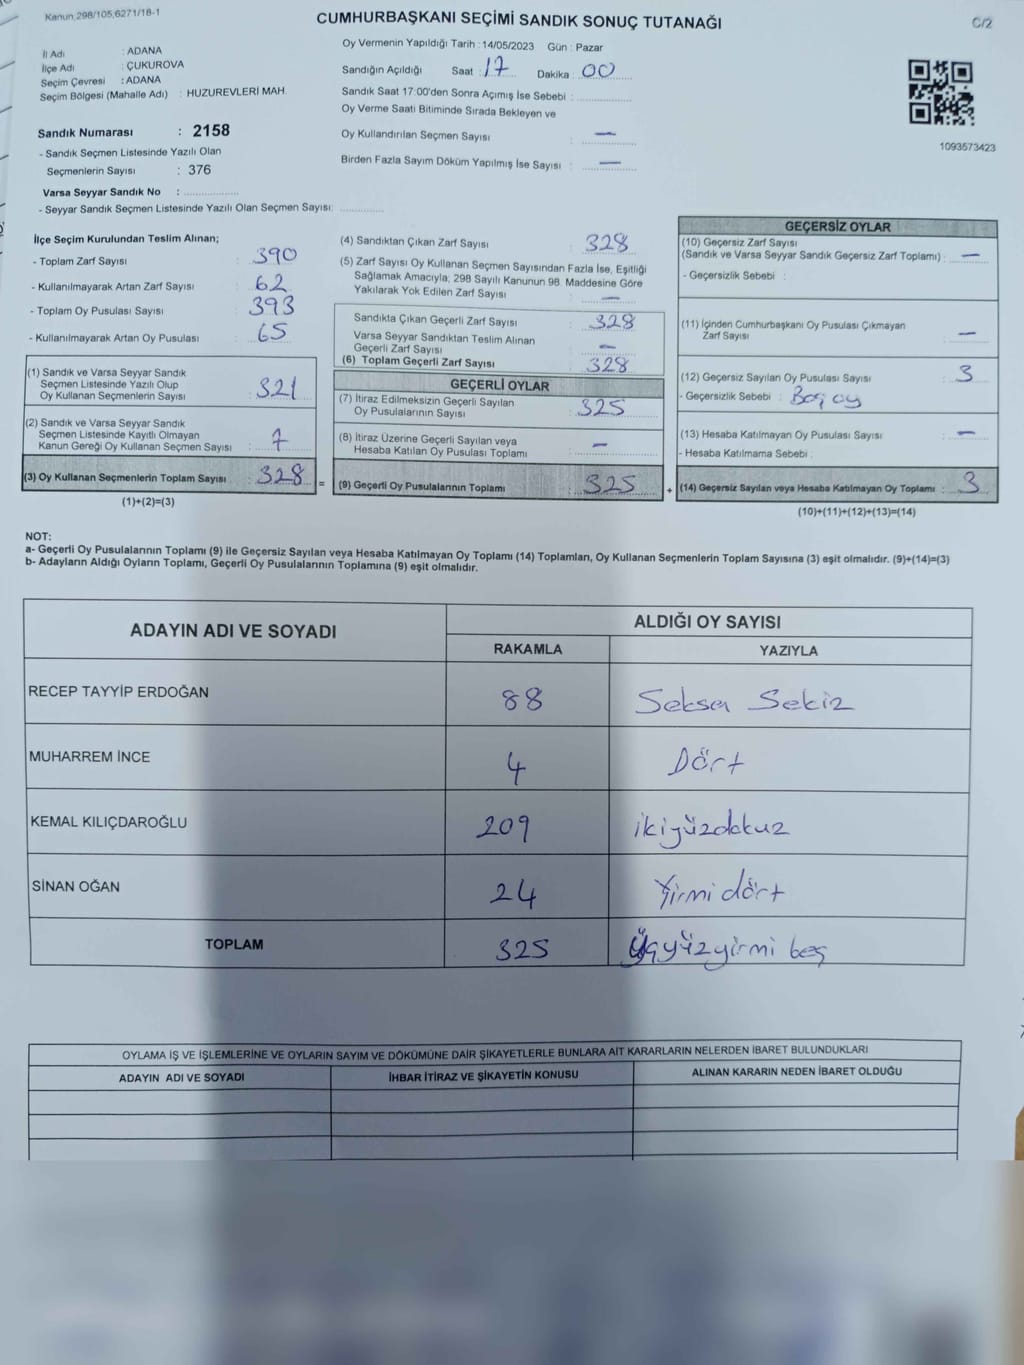 Kanun:298/105,6271/18-1
CUMHURBAŞKANI SEÇİMİ SANDIK SONUÇ TUTANAĞI
C/2
İl Adı : ADANA
İlçe Adı : ÇUKUROVA
Seçim Çevresi : ADANA
Seçim Bölgesi (Mahalle Adı) : HUZUREVLERİ MAH.
Sandık Numarası : 2158
- Sandık Seçmen Listesinde Yazılı Olan
Seçmenlerin Sayısı : 376
Varsa Seyyar Sandık No :
- Seyyar Sandık Seçmen Listesinde Yazılı Olan Seçmen Sayısı:
Oy Vermenin Yapıldığı Tarih : 14/05/2023 Gün : Pazar
Sandığın Açıldığı Saat : 17 Dakika : 00
Sandık Saat 17:00'den Sonra Açımış İse Sebebi :
Oy Verme Saati Bitiminde Sırada Bekleyen ve
Oy Kullandırılan Seçmen Sayısı : —
Birden Fazla Sayım Döküm Yapılmış İse Sayısı : —
1093573423
İlçe Seçim Kurulundan Teslim Alınan;
- Toplam Zarf Sayısı : 390
- Kullanılmayarak Artan Zarf Sayısı : 62
- Toplam Oy Pusulası Sayısı : 393
- Kullanılmayarak Artan Oy Pusulası : 65
(1) Sandık ve Varsa Seyyar Sandık
Seçmen Listesinde Yazılı Olup
Oy Kullanan Seçmenlerin Sayısı : 321
(2) Sandık ve Varsa Seyyar Sandık
Seçmen Listesinde Kayıtlı Olmayan
Kanun Gereği Oy Kullanan Seçmen Sayısı : 7
(3) Oy Kullanan Seçmenlerin Toplam Sayısı : 328 =
(1)+(2)=(3)
(4) Sandıktan Çıkan Zarf Sayısı : 328
(5) Zarf Sayısı Oy Kullanan Seçmen Sayısından Fazla İse, Eşitliği
Sağlamak Amacıyla; 298 Sayılı Kanunun 98. Maddesine Göre
Yakılarak Yok Edilen Zarf Sayısı : —
Sandıkta Çıkan Geçerli Zarf Sayısı : 328
Varsa Seyyar Sandıktan Teslim Alınan
Geçerli Zarf Sayısı : —
(6) Toplam Geçerli Zarf Sayısı : 328
GEÇERLİ OYLAR
(7) İtiraz Edilmeksizin Geçerli Sayılan
Oy Pusulalarının Sayısı : 325
(8) İtiraz Üzerine Geçerli Sayılan veya
Hesaba Katılan Oy Pusulası Toplamı : —
(9) Geçerli Oy Pusulalarının Toplamı : 325 +
GEÇERSİZ OYLAR
(10) Geçersiz Zarf Sayısı
(Sandık ve Varsa Seyyar Sandık Geçersiz Zarf Toplamı) : —
- Geçersizlik Sebebi :
(11) İçinden Cumhurbaşkanı Oy Pusulası Çıkmayan
Zarf Sayısı : —
(12) Geçersiz Sayılan Oy Pusulası Sayısı : 3
- Geçersizlik Sebebi : Boş oy
(13) Hesaba Katılmayan Oy Pusulası Sayısı : —
- Hesaba Katılmama Sebebi :
(14) Geçersiz Sayılan veya Hesaba Katılmayan Oy Toplamı : 3
(10)+(11)+(12)+(13)=(14)
NOT:
a- Geçerli Oy Pusulalarının Toplamı (9) ile Geçersiz Sayılan veya Hesaba Katılmayan Oy Toplamı (14) Toplamları, Oy Kullanan Seçmenlerin Toplam Sayısına (3) eşit olmalıdır. (9)+(14)=(3)
b- Adayların Aldığı Oyların Toplamı, Geçerli Oy Pusulalarının Toplamına (9) eşit olmalıdır.
ADAYIN ADI VE SOYADI
ALDIĞI OY SAYISI
RAKAMLA YAZIYLA
RECEP TAYYİP ERDOĞAN 88 Seksen Sekiz
MUHARREM İNCE 4 Dört
KEMAL KILIÇDAROĞLU 209 ikiyüzdokuz
SİNAN OĞAN 24 Yirmi dört
TOPLAM 325 Üçyüzyirmi beş
OYLAMA İŞ VE İŞLEMLERİNE VE OYLARIN SAYIM VE DÖKÜMÜNE DAİR ŞİKAYETLERLE BUNLARA AİT KARARLARIN NELERDEN İBARET BULUNDUKLARI
ADAYIN ADI VE SOYADI İHBAR İTİRAZ VE ŞİKAYETİN KONUSU ALINAN KARARIN NEDEN İBARET OLDUĞU